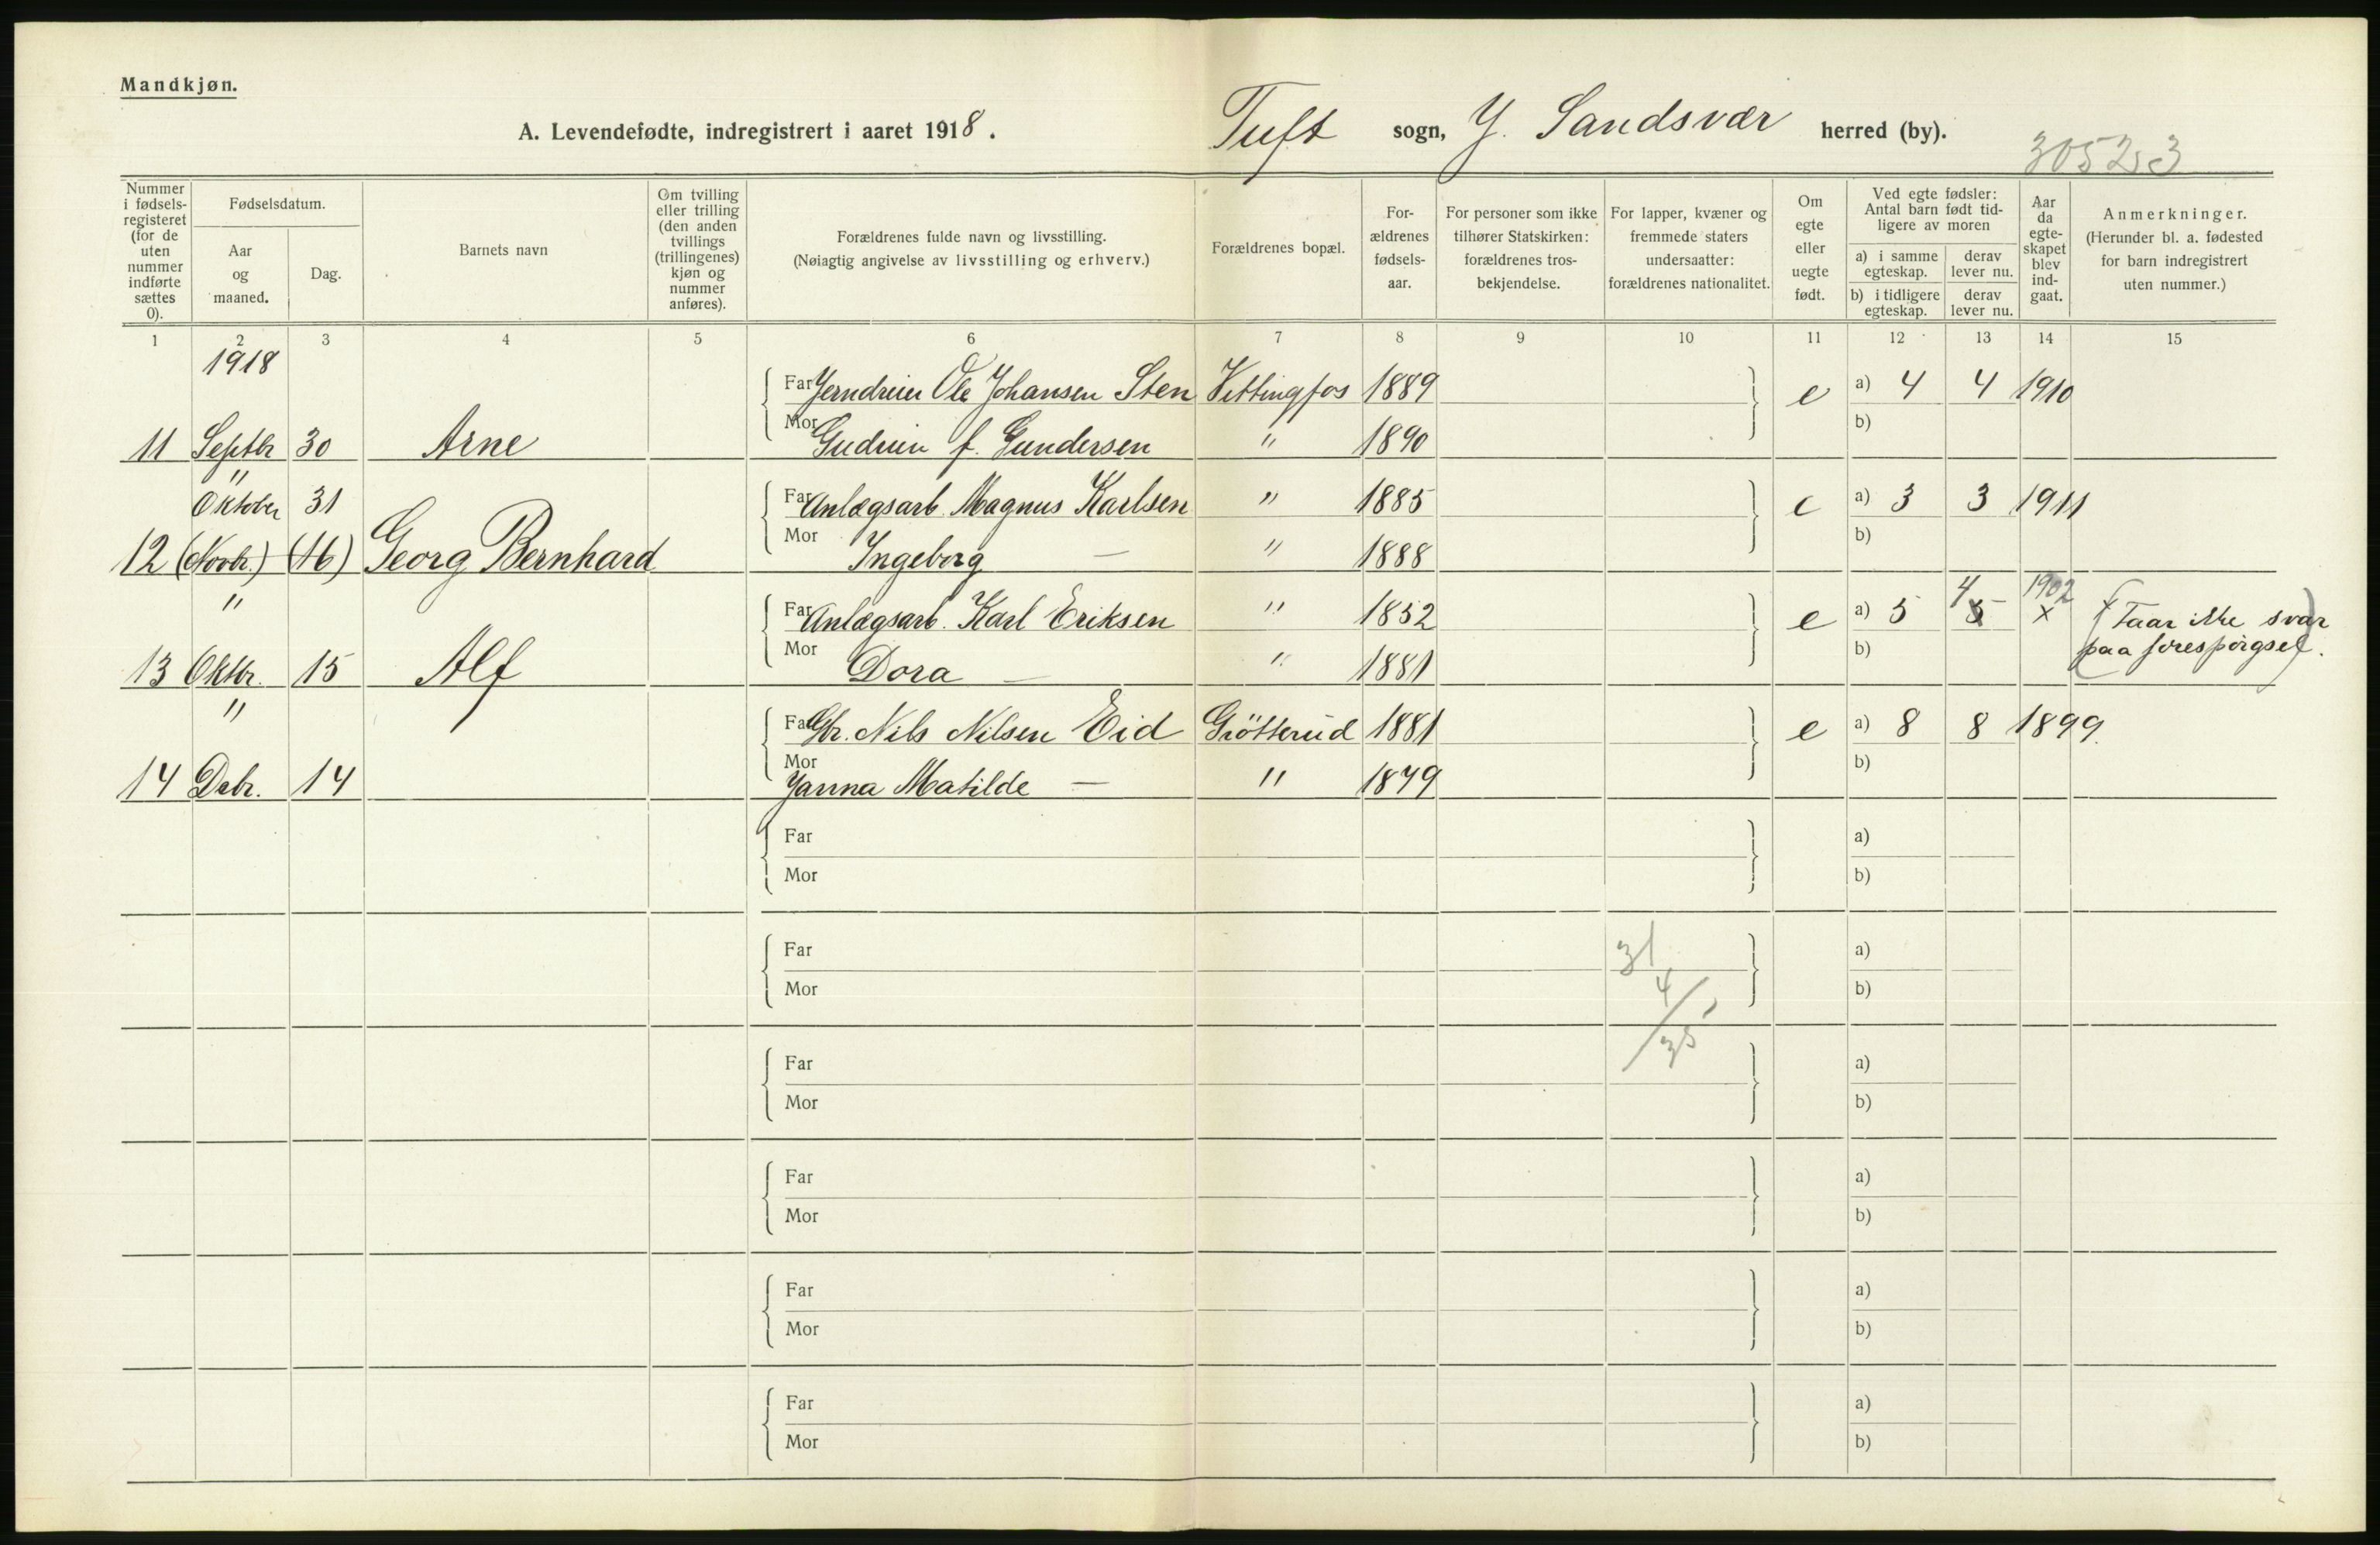 Mandkjøn.
A. Levendefødte, indregistrert i aaret 1918.
Tuft sogn, Y. Sandsvær herred (by).
30523
Nummer i fødsels-registeret (for de uten nummer indførte sættes 0).
Fødselsdatum.
Aar og maaned.
Dag.
Barnets navn
Om tvilling eller trilling (den anden tvillings (trillingenes) kjøn og nummer anføres).
Forældrenes fulde navn og livsstilling.
(Nøiagtig angivelse av livsstilling og erhverv.)
Forældrenes bopæl.
For-ældrenes fødsels-aar.
For personer som ikke tilhører Statskirken: forældrenes tros-bekjendelse.
For lapper, kvæner og fremmede staters undersaatter: forældrenes nationalitet.
Om egte eller uegte født.
Ved egte fødsler: Antal barn født tid-ligere av moren
a) i samme egteskap.
derav lever nu.
b) i tidligere egteskap.
derav lever nu.
Aar da egte-skapet blev ind-gaat.
Anmerkninger.
(Herunder bl. a. fødested for barn indregistrert uten nummer.)
1 2 3 4 5 6 7 8 9 10 11 12 13 14 15
1918
Far Ole Johansen Sten Vittingfos 1889 e a) 4 4 1910
11 Septbr 30 Arne Mor Gudrun f. Gundersen " 1890 b)
" Oktober 31 Far Anlægsarb. Magnus Karlsen " 1885 e a) 3 3 1911
12 (Novbr.) (16) Georg Bernhard Mor Ingeborg — " 1888 b)
" Far Anlægsarb. Karl Eriksen " 1852 e a) 5 5 4 x 1902 x (Faar ikke svar
13 Oktbr. 15 Alf Mor Dora — " 1881 b) paa forespørgsel.)
" Far Gbr. Nils Nilsen Eid Grötterud 1881 e a) 8 8 1899.
14 Debr. 14 Mor Janna Matilde — " 1879 b)
Far a)
Mor b)
Far 31 a)
Mor 4 b)
Far 35 a)
Mor b)
Far a)
Mor b)
Far a)
Mor b)
Far a)
Mor b)